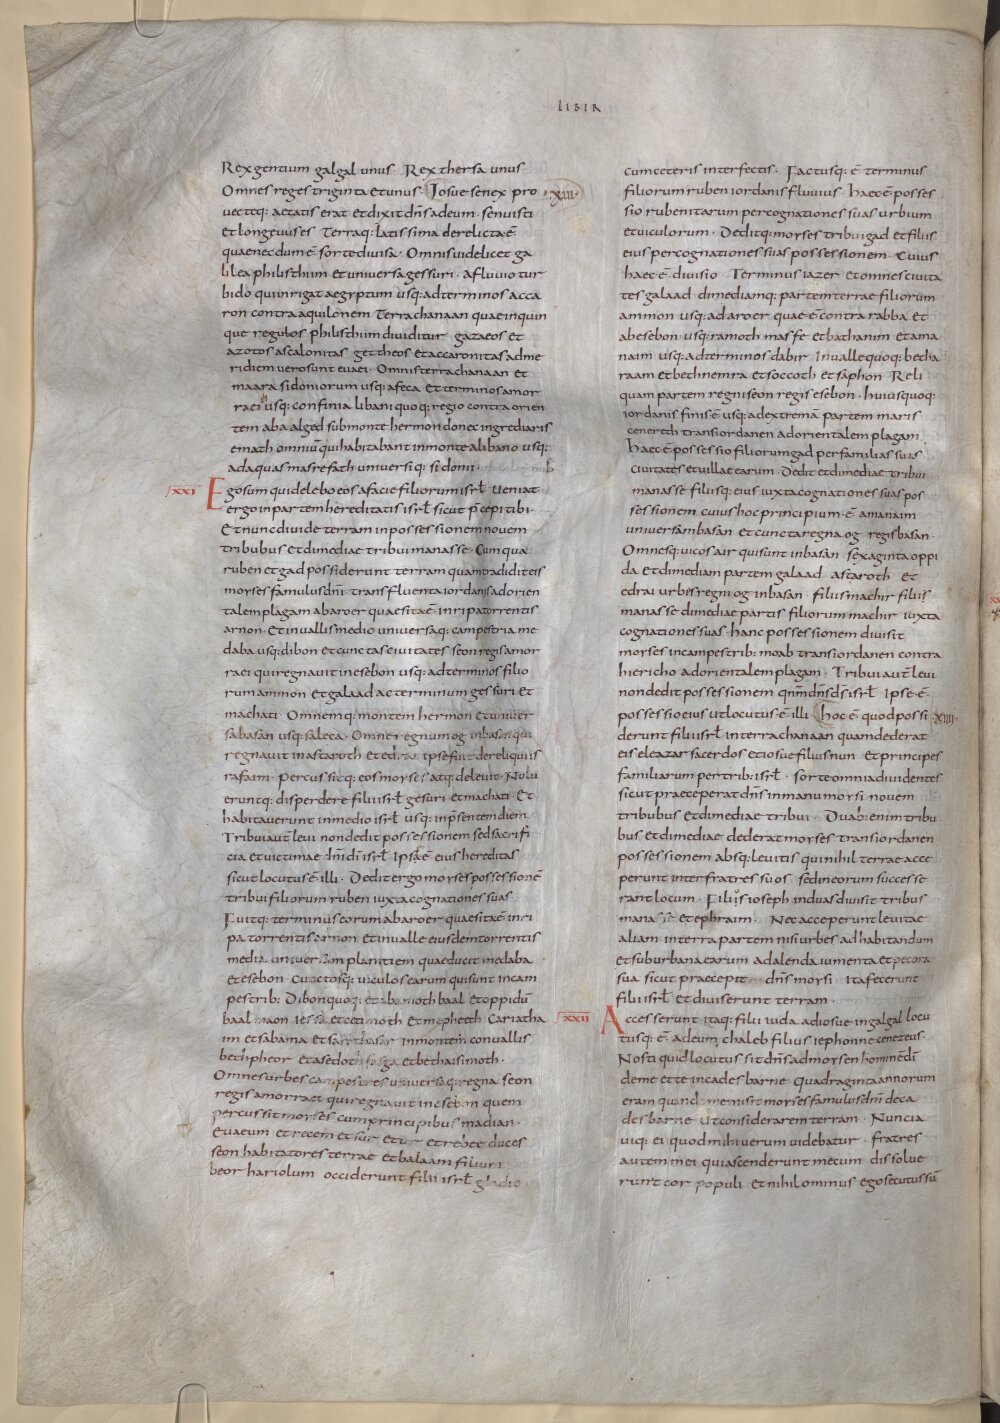 LIBER
Rex gentium galgal unus · Rex thersa unus
Omnes reges triginta et unus · Iosue senex pro
·XIII·
uecteq: aetatis erat et dixit dñs ad eum · senuisti
et longeuus es Terraq: latissima derelicta ē
quae necdum ē sorte diuisa · Omnis uidelicet ga
lilea philisthim et uniuersa gessuri · A fluuio tur
bido qui inrigat aegyptum usq: ad terminos acca
ron contra aquilonem Terra chanaan quae in quin
que regulos philisthim diuiditur gazaeos et
azotos ascalonitas gettheos et accaronitas ad me
ridiem uero sunt euaei · Omnis terra chanaan et
maara sidoniorum usq: afeca et terminos amor
raei usq: confinia libani quoq: regio contra orien
tem a baalgad sub monte hermon donec ingrediaris
emath omniū qui habitabant in monte a libano usq:
ad aquas masrefath uniuersiq: sidonii
XXI
Ego sum qui delebo eos a facie filiorum isrł Ueniat
ergo in partem hereditatis isrł sicut p̄cepi tibi ·
Et nunc diuide terram in possessionem nouem
tribubus Et dimediae tribui manasse · Cum qua
ruben et gad possiderunt terram quam tradidit eis
moyses famulus dñi trans fluenta iordanis ad orien
talem plagam ab aroer quae sita ē in ripa torrentis
arnon · Et in uallis medio uniuersaq: campestria me
daba usq: dibon et cunctas ciuitates seon regis amor
raei qui regnauit in esebon usq: ad terminos filio
rum ammon et galaad ac terminum gessuri et
machati Omnemq: montem hermon et uniuer
sa basan usq: saleca · Omne regnum og in basan qui
regnauit in astaroth et edrai ipse fuit de reliquiis
rafaim · Percussitq: eos moyses atq: deleuit · Nolu
eruntq: disperdere filii isrł gesuri et machati · Et
habitauerunt in medio isrł usq: in p̄sentem diem
Tribui auť leui non dedit possessionem sed sacrifi
cia et uictimae dñi dī isrł Ipsa ē eius hereditas
sicut locutus ē illi · Dedit ergo moyses possessionē
tribui filiorum ruben iuxta cognationes suas
Fuitq: terminus eorum ab aroer quae sita ē in ri
pa torrentis arnon et in ualle eiusdem torrentis
media uniuersam planitiem quae ducit medaba
et esebon Cunctosq: uiculos earum qui sunt in cam
pestrib: Dibon quoq: et bamoth baal et oppidū
baal maon iessa et cetimoth et mepheeth Cariatha
im et sabama et sarathasar in monte conuallis
bethpheor et asedoth fasga et bethaisimoth ·
Omnes urbes campestres uniuersaq: regna seon
regis amorraei qui regnauit in esebon quem
percussit moyses cum principibus madian ·
Euaeum et recem et sur et ur et rebee duces
seon habitatores terrae et balaam filium
beor hariolum occiderunt filii isrł gladio
cum ceteris interfectis · Factusq: ē terminus
filiorum ruben iordanis fluuius haec ē posses
sio rubenitarum per cognationes suas urbium
et uiculorum · Deditq: moyses tribui gad et filiis
eius per cognationes suas possessionem Cuius
haec ē diuisio Terminus iazer et omnes ciuita
tes galaad dimediamq: partem terrae filiorum
ammon usq: ad aroer quae ē contra rabba et
ab esebon usq: ramoth masfe et bathanim et ama
naim usq: ad terminos dabir In ualle quoq: betha
raam et bethnemra et soccoth et saphon Reli
quam partem regni seon regis esebon · huius quoq:
iordanis finis ē usq: ad extremā partem maris
cenereth trans iordanen ad orientalem plagam
haec ē possessio filiorum gad per familias suas
ciuitates et uillae earum Dedit et dimediae tribui
manasse filiisq: eius iuxta cognationes suas pos
sessionem cuius hoc principium · ē amanaim
uniuersam basan et cuncta regna og regis basan ·
Omnesq: uicos air qui sunt in basan sexaginta oppi
da Et dimediam partem galaad astaroth et
edrai urbes regni og in basan filiis machir filiis
manasse dimediae partis filiorum machir iuxta
cognationes suas · hanc possessionem diuisit
moyses in campestrib: moab trans iordanen contra
hiericho ad orientalem plagam Tribui auť leui
non dedit possessionem qnm dñs ds isrł Ipse · ē ·
possessio eius ut locutus · ē illi · hoc ē quod possi
XIIII·
derunt filii isrł in terra chanaan quam dederat
eis eleazar sacerdos et iosue filius nun et principes
familiarum per trib: isrł · sorte omnia diuidentes
sicut praeceperat dñs in manu moysi nouem
tribubus et dimediae tribui · Duab: enim tribu
bus et dimediae dederat moyses trans iordanen
possessionem absq: leuitis qui nihil terrae acce
perunt inter fratres suos sed in eorum successe
rant locum · Filiis ioseph in duas diuisit tribus
manasse et ephraim Nec acceperunt leuitae
aliam in terra partem nisi urbes ad habitandum
et suburbana earum ad alenda iumenta et pecora
sua sicut praecepit dñs moysi ita fecerunt
filii isrł et diuiserunt terram ·
XXII
Accesserunt itaq: filii iuda ad iosue in galgal locu
tusq: ē ad eum chaleb filius iephonne cenezeus ·
Nosti quid locutus sit dñs ad moysen hominē dī
de me et te in cadesbarne Quadraginta annorum
eram quando me misit moyses famulus dñi de ca
desbarne ut considerarem terram Nuncia
uiq: ei quod mihi uerum uidebatur · fratres
autem mei qui ascenderunt mecum dissolue
runt cor populi et nihilominus ego secutus sū